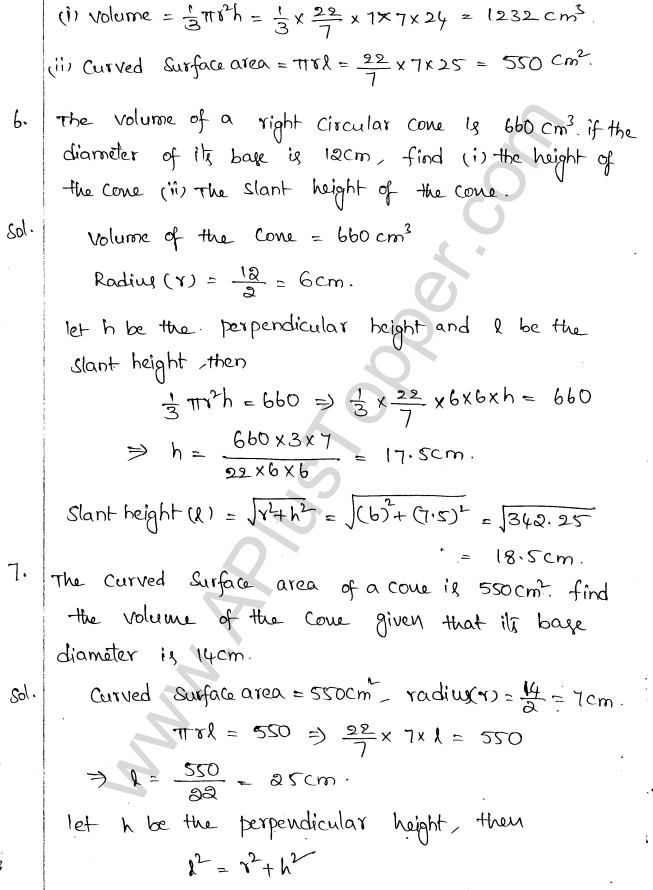 (i) Volume = 1/3 πr²h = 1/3 × 22/7 × 7 × 7 × 24 = 1232 cm³.
(ii) Curved Surface area = πrl = 22/7 × 7 × 25 = 550 cm².
6. The volume of a right circular cone is 660 cm³. if the
diameter of its base is 12cm, find (i) the height of
the cone (ii) The slant height of the cone.
Sol. Volume of the cone = 660 cm³
Radius (r) = 12/2 = 6cm.
let h be the perpendicular height and l be the
slant height, then
1/3 πr²h = 660 ⇒ 1/3 × 22/7 × 6×6×h = 660
⇒ h = 660×3×7/22×6×6 = 17.5cm.
Slant height (l) = √r²+h² = √(6)²+(7.5)² = √342.25
= 18.5cm.
7. The Curved Surface area of a cone is 550cm². find
the volume of the Cone given that its base
diameter is 14cm.
Sol. Curved Surface area = 550cm², radius(r) = 14/2 = 7cm.
πrl = 550 ⇒ 22/7 × 7 × l = 550
⇒ l = 550/22 = 25cm.
let h be the perpendicular height, then
l² = r² + h²
www.APlusTopper.com